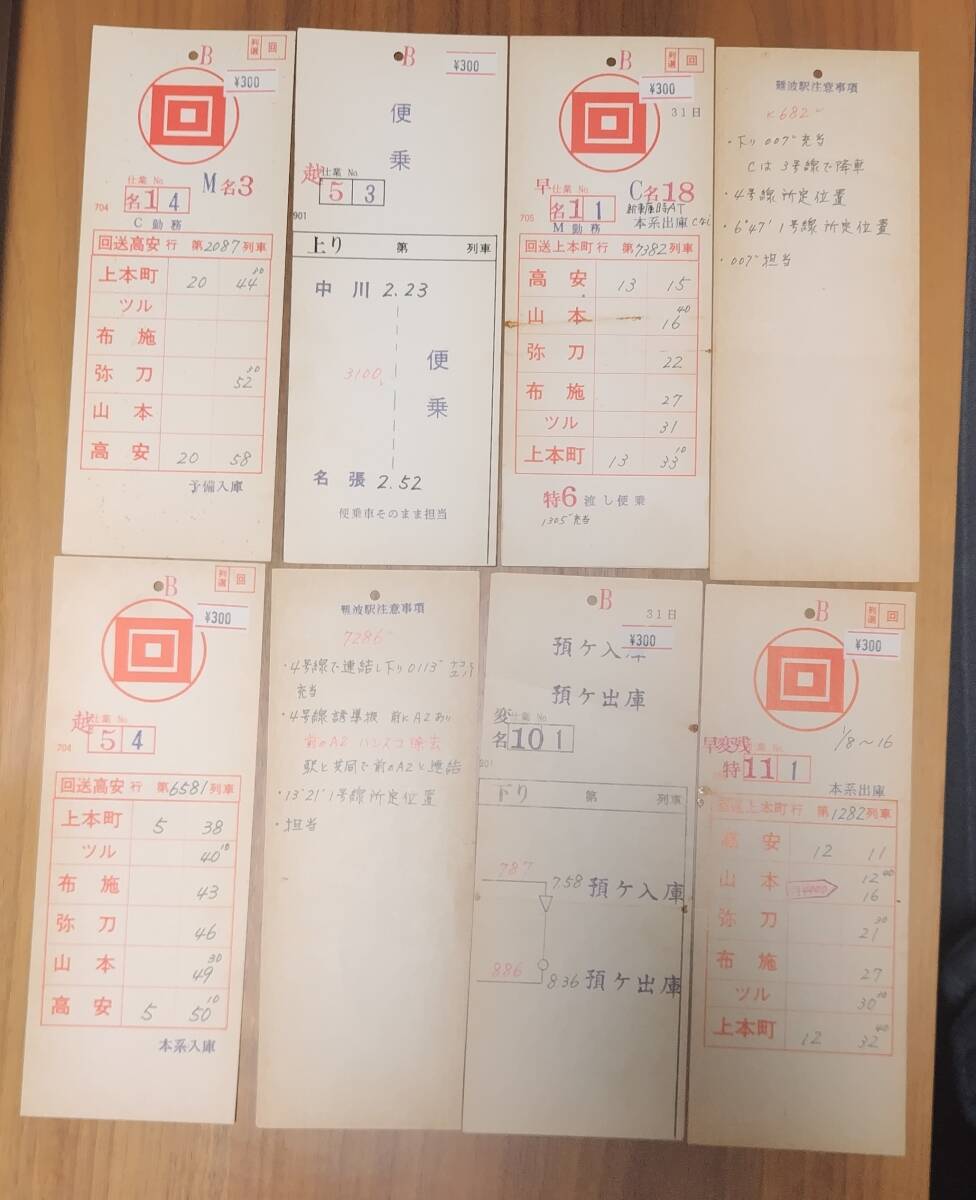 B
列選 回
¥300
回
仕業 No.
M名3
名1 4
704
C 勤務
回送高安 行 第2087列車
上本町 20 44 30
ツル
布施
弥刀 52 30
山本
高安 20 58
予備入庫
B
¥300
便乗
越
仕業 No.
5 3
901
上り 第 列車
中川 2.23
3100
便乗
名張 2.52
便乗車そのまま担当
B
列選 回
¥300
31日
回
早 仕業 No.
C名18
名1 1
705
M 勤務
本系出庫
回送上本町 行 第7382列車
高安 13 15
山本 16 40
弥刀 22
布施 27
ツル 31
上本町 13 33 10
特6 渡し便乗
1305 充当
難波駅注意事項
・下り 007 充当
Cは3号線で降車
・4号線所定位置
・6°47' 1号線所定位置
・007 担当
B
列選 回
¥300
回
越
仕業 No.
5 4
704
回送高安 行 第6581列車
上本町 5 38
ツル 40 10
布施 43
弥刀 46
山本 49 30
高安 5 50 10
本系入庫
難波駅注意事項
7286
・4号線で連結し下り0113
充当
・4号線誘導扱 前にA2あり
前のA2 パンスコ除去
駅と共同で前のA2と連結
・13°21' 1号線所定位置
・担当
B
31日
¥300
預ケ入庫
預ケ出庫
変
仕業 No.
名 10 1
下り 第 列車
787
7.58 預ケ入庫
886
8.36 預ケ出庫
B
列選 回
¥300
回
早変残
1/8~16
特11 1
本系出庫
回送上本町 行 第1282列車
高安 12 11
山本 12 16
弥刀 21 30
布施 27
ツル 30
上本町 12 32 40